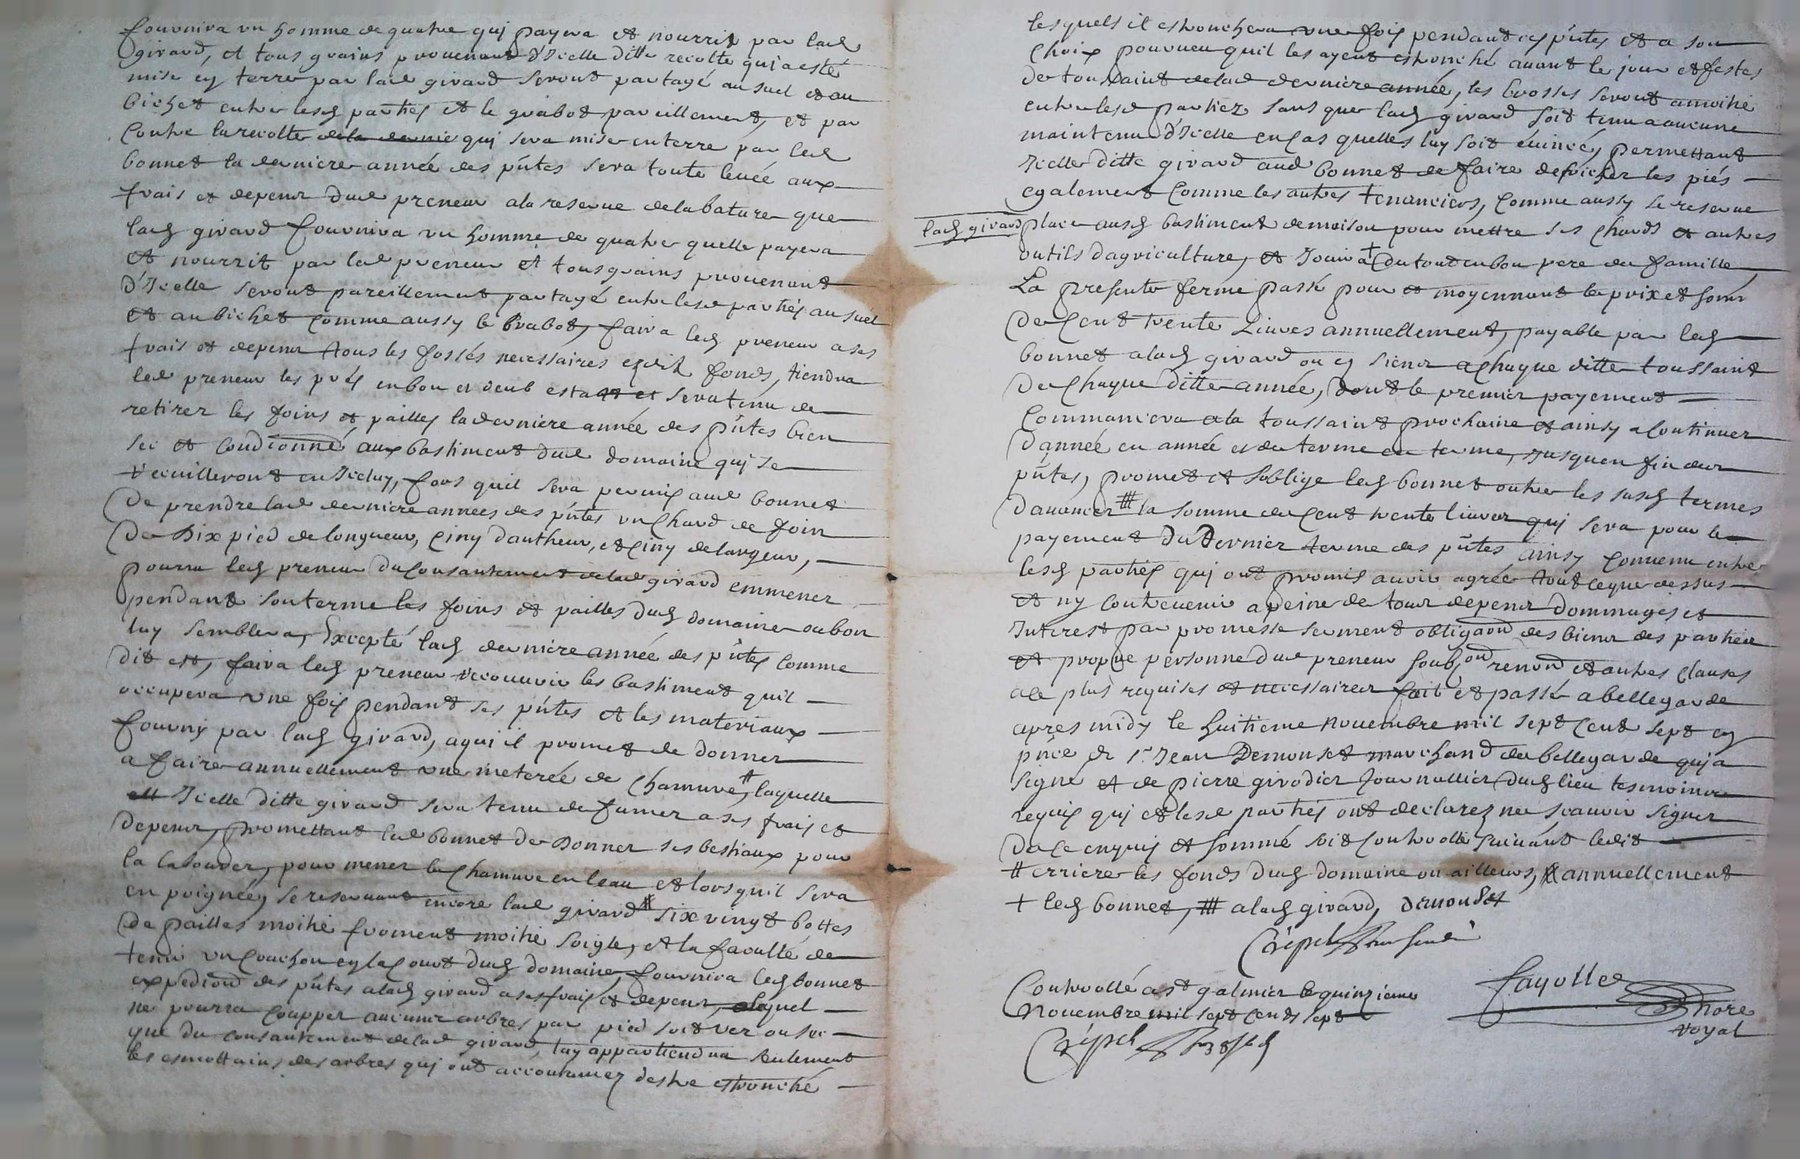 fournira un homme de quatre quj payera et nourrira par lad
girard, et tous grains provenant d'Icelle ditte recolte quj a esté
mise en terre par lad girard seront partagé au suel et au
bichet entre lesd parties et le grabot pareillement, et par
contre la recolte de la derniere quj sera mise en terre par led
bonnet la derniere année des pñtes sera toute levée aux
frais et depens dud preneur a la reserve de la bature que
lad girard fournira un homme de quatre quelle payera
et nourrit par led preneur et tous grains provenant
d'Icelle seront pareillement partagé entre lesd parties au suel
et au bichet comme aussy le Grabot, faira led preneur a ses
frais et depens tous les fossés necessaires esdits fonds, tiendra
led preneur les prés en bon et deub estat et sera tenu de
retirer les foins et pailles la derniere année des pñtes bien
sec et condionné aux bastiment dud domaine quj se
recuilleront en Iceluy, fors quil sera permis aud bonnet
de prendre lad derniere annees des pñtes un Chard de foin
De Dix pied de longueur, Cinq d'autheur, et Cinq de largeur,
pourra led preneur du Consantement de lad girard emmener
pendant son terme les foins et pailles dud domaine ou bon
luy semblera, Excepté lad derniere année des pñtes Comme
dit est, faira led preneur recouvrir les bastiment quil
occupera une fois pendant ses pñtes et les materiaux
fourny par lad girard, a qui il promet de donner
a faire annuellement une meterée de Chamure, # laquelle
Icelle ditte girard sera tenu de fumer a ses frais et
depens, promettant led bonnet de Donner ses bestiaux pour
la labourer, pour mener le Chamure en leau et lors quil sera
en poignée, se reservant encore lad girard # six vingt bottes
de pailles moitié froment moitié soigle, et la faculté de
tenir un Couchon en la Court dud domaine, fournira led bonnet
expedions des pñtes a lad girard a ses frais et depens, lequel
ne pourra Coupper aucuns arbres par pied soit ver ou sec
que du consantement de lad girard, luy appartiendra seulement
les esmottains des arbres quj ont accoutumez destre estronché
lesquels il estronchera une fois pendant ces pñtes et a son
Choix pourveu quil les ayent estronché avant le jour et festes
de toussaint de lad derniere année, les brosses seront a moitié
entre lesd partiez sans que lad girard soit tenu a aucune
maintenu d'Icelle en Cas quelles luy soit évincé, permettant
Icelle ditte girard aud bonnet de faire deficher les piés
egalement Comme les autres tenanciers, Comme aussy se reserve
lad girard place ausd bastiment de maison pour mettre ses Chards et autres
outils dagriculture, et Jouira + du tout en bon pere de famille,
La presente ferme passé pour et moyennant le prix et some
De Cent trente Livres annuellement, payable par led
bonnet a lad girard ou es siens a Chaque ditte toussaint
de Chaque ditte année, dont le premier payement
Commancera a la toussaint prochaine et ainsy a Continuer
d'année en année et de terme en terme, Jusques en fin des
pñtes, promet et soblige led bonnet outre les susd termes
d'avancer ### la somme de Cent trente livres qui sera pour le
payement Du Dernier terme des pñtes ainsy Convenu entre
lesd parties quj ont promis avoir agrée tout ce que dessus
et ny Contrevenir a peine de tous depens dommages et
Interest par promesse serment obligaōn des biens des parties
et propre personne dud preneur soub͂ on renonn et autres Clauses
a ce plus requises et necessaires fait et passé a bellegarde
apres midy le huitieme novembre mil sept Cent sept en
pñce de Sr Jean Demonset marchand de bellegarde quj a
signé et de pierre girodier Journallier dud lieu tesmoins
requis quj et lesd parties ont declarez ne scavoir signer
de ce enquis et sommé soit Controollé suivant ledit
# erriere les fonds dud domaine ou ailleurs, # annuellement
+ led bonnet, ### a lad girard, Demonset
Controollé a st galmier le quinzieme
Novembre mil sept Cents sept
fayolle
Nore
royal